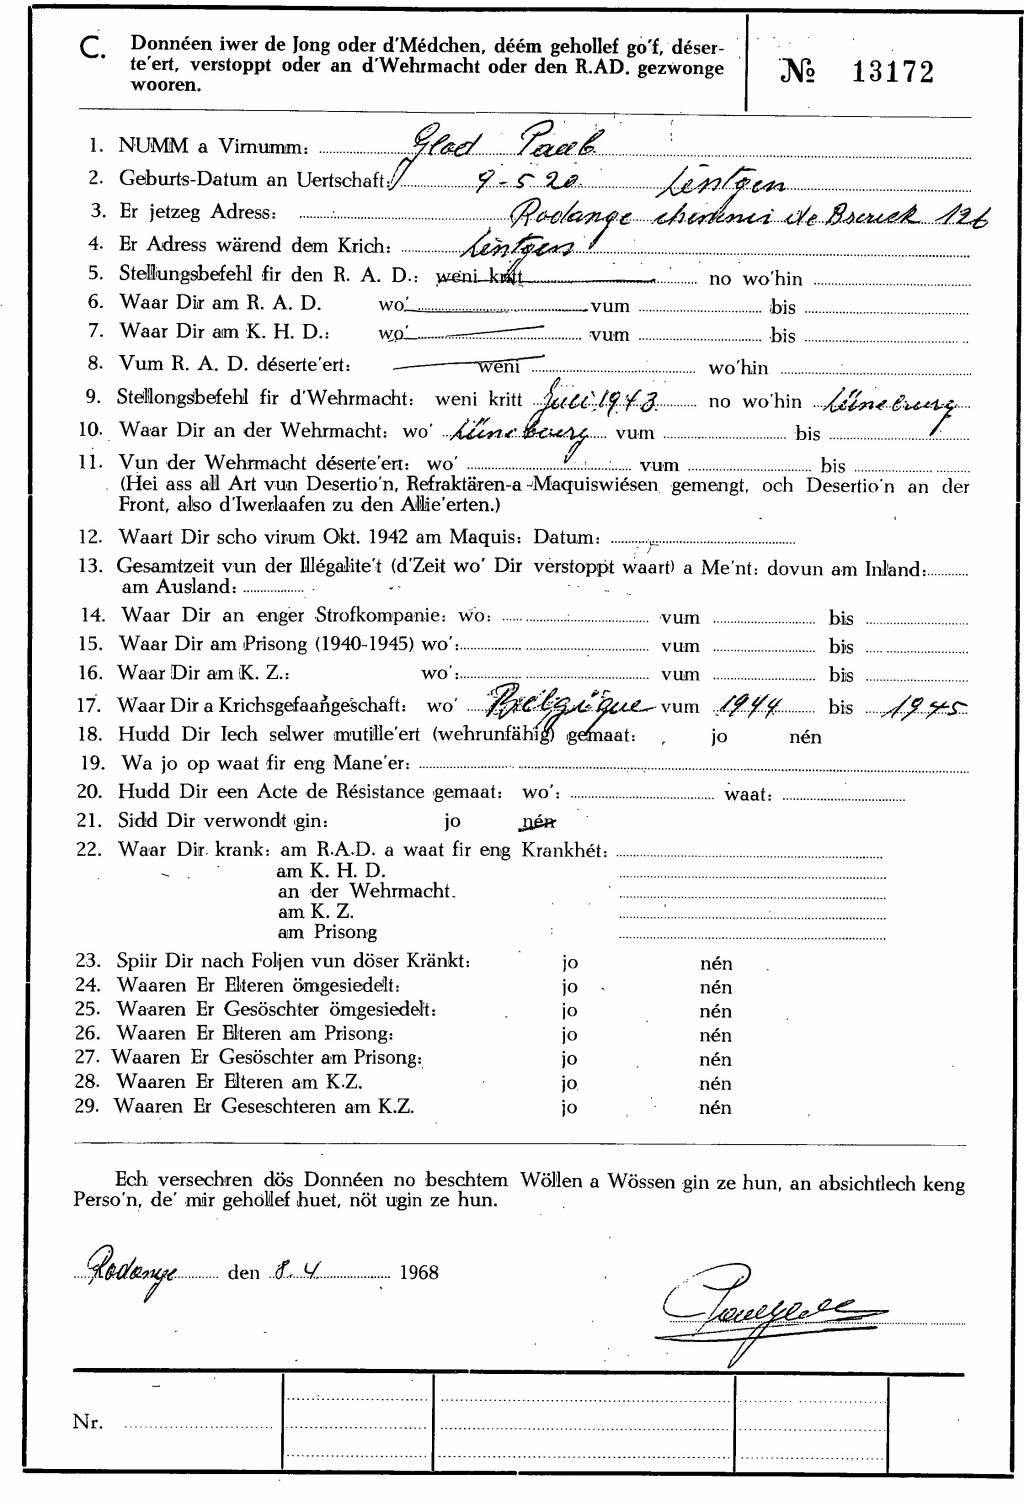 C. Donnéen iwer de Jong oder d'Médchen, déém gehollef go'f, déser-
te'ert, verstoppt oder an d'Wehrmacht oder den R.AD. gezwonge
wooren.
№ 13172
1. NUMM a Virnumm: Glod Paul
2. Geburts-Datum an Uertschaft: 9-5 20. Lëntgen
3. Er jetzeg Adress: Rodange chemin de Brouck 126
4. Er Adress wärend dem Krich: Lëntgen
5. Stellungsbefehl fir den R. A. D.: weni kritt no wo'hin
6. Waar Dir am R. A. D. wo' vum bis
7. Waar Dir am K. H. D.: wo' vum bis
8. Vum R. A. D. déserte'ert: weni wo'hin
9. Stelllongsbefehl fir d'Wehrmacht: weni kritt Juli 1943 no wo'hin Lüneburg
10. Waar Dir an der Wehrmacht: wo' Lüneburg vum bis
11. Vun der Wehrmacht déserte'ert: wo' vum bis
(Hei ass all Art vun Desertio'n, Refraktären-a -Maquiswiésen gemengt, och Desertio'n an der
Front, also d'Iwerlaafen zu den Allie'erten.)
12. Waart Dir scho virum Okt. 1942 am Maquis: Datum:
13. Gesamtzeit vun der Illégalite't (d'Zeit wo' Dir verstoppt waart) a Me'nt: dovun am Inland:
am Ausland:
14. Waar Dir an enger Strofkompanie: wo: vum bis
15. Waar Dir am Prisong (1940-1945) wo': vum bis
16. Waar Dir am K. Z.: wo': vum bis
17. Waar Dir a Krichsgefaangeschaft: wo' Belgique vum 1944 bis 1945
18. Hudd Dir Iech selwer mutille'ert (wehrunfähig) gemaat: jo nén
19. Wa jo op waat fir eng Mane'er:
20. Hudd Dir een Acte de Résistance gemaat: wo': waat:
21. Sidd Dir verwondt gin: jo nén
22. Waar Dir krank: am R.A.D. a waat fir eng Krankhét:
am K. H. D.
an der Wehrmacht.
am K. Z.
am Prisong
23. Spiir Dir nach Foljen vun döser Kränkt: jo nén
24. Waaren Er Elteren ömgesiedelt: jo nén
25. Waaren Er Gesöschter ömgesiedelt: jo nén
26. Waaren Er Elteren am Prisong: jo nén
27. Waaren Er Gesöschter am Prisong: jo nén
28. Waaren Er Elteren am K.Z. jo nén
29. Waaren Er Geseschteren am K.Z. jo nén
Ech versechren dös Donnéen no beschtem Wöllen a Wössen gin ze hun, an absichtlech keng
Perso'n, de' mir gehollef huet, nöt ugin ze hun.
Rodange den 8. 4 1968
Nr.